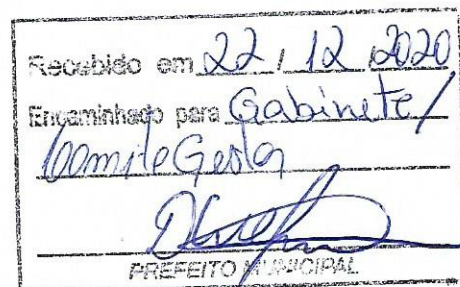 Recebido em 22 / 12 / 2020
Encaminhado para Gabinete/
Comitê Gestor
PREFEITO MUNICIPAL